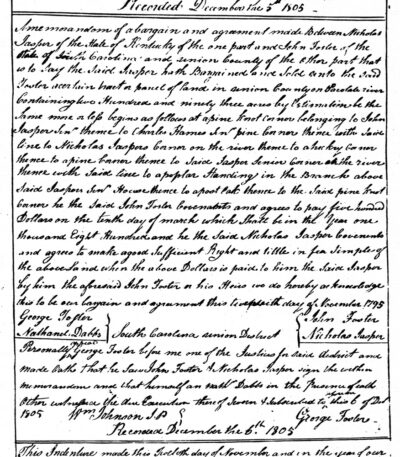 Recorded December the 5th 1805
A memorandom of a bargain and agreement made Between Nicholas
Jasper of the State of Kentucky of the one part and John Foster of the
State of South Carolina and union County of the Other part that
is to Say the Said Jasper hath Bargained and Sold unto the Said
Foster a certain tract or parcel of land in union County on Pacolate river
Containing two Hundred and ninety three acres by Estimation be the
Same more or less begins as follows at a pine Knot Corner belonging to John
Jasper Senr thence to Charles Hames Senr pine Corner thence with Said
line to Nicholas Jaspers Corner on the river thence to a hickry Corner
thence to a pine Corner thence to Said Jasper Senior Corner on the river
thence with Said line to a poplar Standing in the Branch above
Said Jasper Senr House thence to a post oak thence to the Said pine Knot
Corner he the Said John Foster Covenants and agrees to pay five hundred
Dollars on the tenth day of march which Shall be in the Year one
thousand Eight Hundred and he the Said Nicholas Jasper Covenants
and agrees to make good Sufficient Right and tittle in fee Simple of
the above land when the above Dollars is paid to him the Said Jasper
by him the aforesaid John Foster or his Heirs we do hereby acknowledge
this to be our bargain and agreement this day of November 1795
George Foster John Foster
Nathaniel Dabbs South Carolina union District Nicholas Jasper
Personally George Foster before me one of the Justices for Said district and
made Oath that he Saw John Foster & Nicholas Jasper Sign the within
memorandom and that himself and Nathl Dabbs in the presence of each
Other witnessed the due Execution there of Sworn & Subscribed to this 6 of Dec
1805 Wm Johnson J.P George Foster
Recorded December the 6th 1805
This Indenture made this day of November and in the year of our